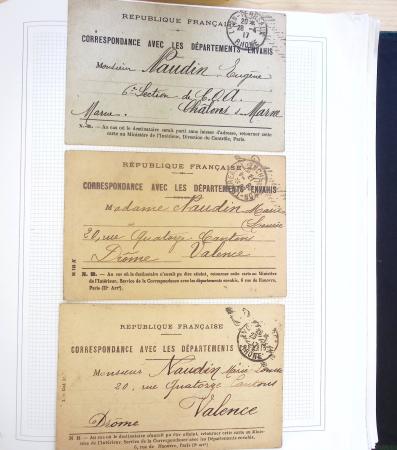 RÉPUBLIQUE FRANÇAISE
CORRESPONDANCE AVEC LES DÉPARTEMENTS ENVAHIS
20
28-4
17
RHONE
Monsieur Naudin Eugène
6e Section de C.O.A.
Châlons s Marne
Marne
N.-B. — Au cas où le destinataire serait parti sans laisser d'adresse, retourner cette
carte au Ministère de l'Intérieur, Direction du Contrôle, Paris
RÉPUBLIQUE FRANÇAISE
CORRESPONDANCE AVEC LES DÉPARTEMENTS ENVAHIS
Madame Naudin Marie
Louise
20, rue Quatorze Cantons
Drôme Valence
N. B. — Au cas où le destinataire n'aurait pu être atteint, retourner cette carte au Ministère
de l'Intérieur, Service de la Correspondance avec les départements envahis, 6 rue de Hanovre,
Paris (IIe Arrt).
RÉPUBLIQUE FRANÇAISE
CORRESPONDANCE AVEC LES DÉPARTEMENTS
RHONE
Monsieur Naudin Marie Louise
20, rue Quatorze Cantons
Valence
Drôme
N B — Au cas où le destinataire n'aurait pu être atteint, retourner cette carte au Minis-
tère de l'Intérieur, Service de la Correspondance avec les départements envahis,
6, rue de Hanovre, Paris (2e arrt)